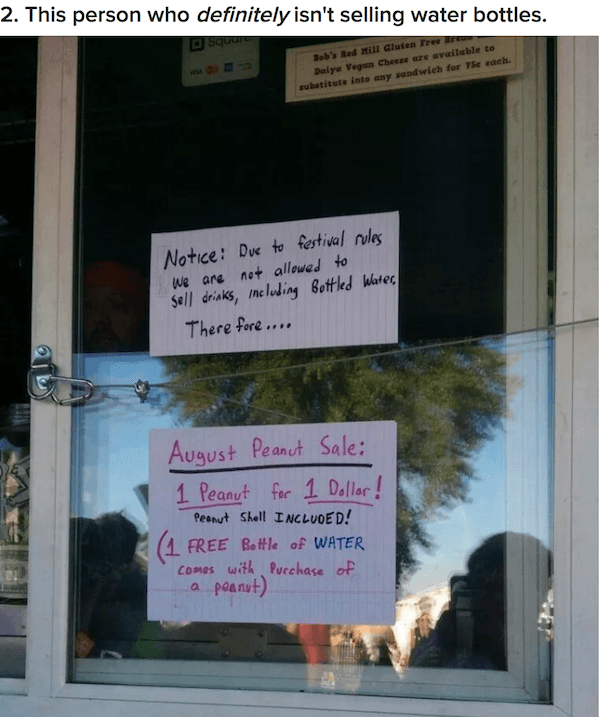 2. This person who definitely isn't selling water bottles.
Square
VISA
Bob's Red Mill Gluten Free
Daiya Vegan Cheese are available to
substitute into any sandwich for 75¢ each.
Notice: Due to festival rules
we are not allowed to
Sell drinks, including Bottled Water,
There fore....
August Peanut Sale:
1 Peanut for 1 Dollar!
Peanut Shell INCLUDED!
(1 FREE Bottle of WATER
Comes with Purchase of
a peanut)